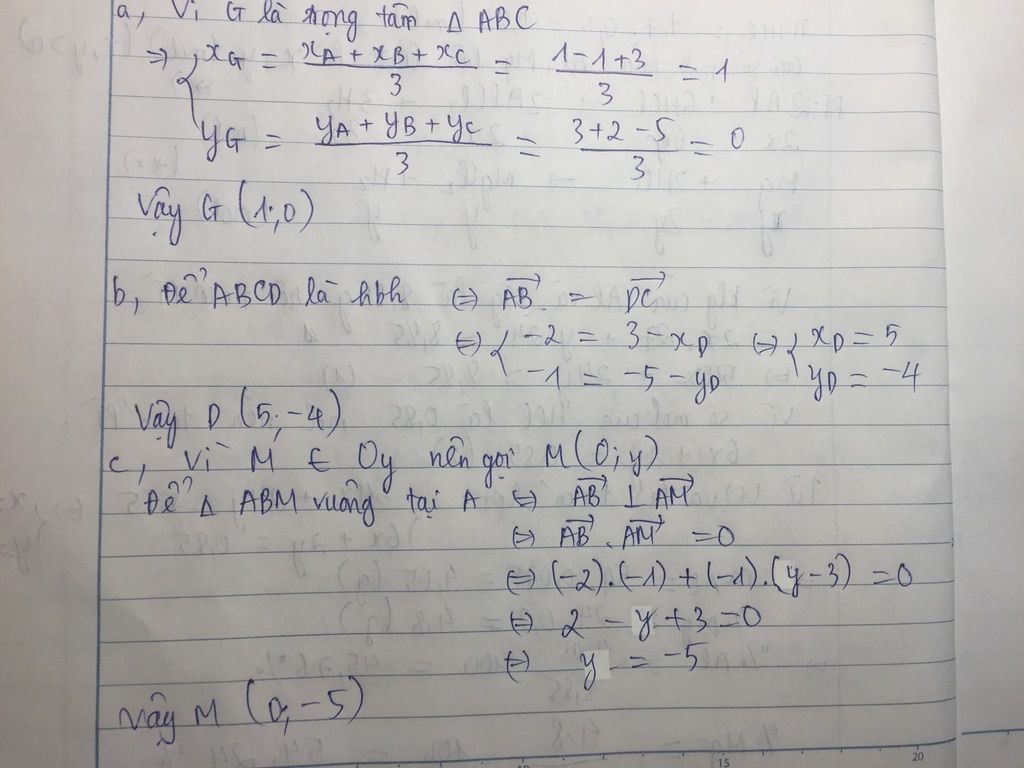 a, Vì G là trọng tâm Δ ABC
⇒ { x_G = (x_A + x_B + x_C)/3 = (1 - 1 + 3)/3 = 1
y_G = (y_A + y_B + y_C)/3 = (3 + 2 - 5)/3 = 0
Vậy G (1; 0)
b, Để ABCD là hbh ⇔ \overrightarrow{AB} = \overrightarrow{DC}
⇔ { -2 = 3 - x_D ⇔ { x_D = 5
-1 = -5 - y_D y_D = -4
Vậy D (5; -4)
c, Vì M ∈ Oy nên gọi M (0; y)
Để Δ ABM vuông tại A ⇔ \overrightarrow{AB} ⊥ \overrightarrow{AM}
⇔ \overrightarrow{AB} . \overrightarrow{AM} = 0
⇔ (-2).(-1) + (-1).(y - 3) = 0
⇔ 2 - y + 3 = 0
⇔ y = -5
Vậy M (0; -5)
15 20